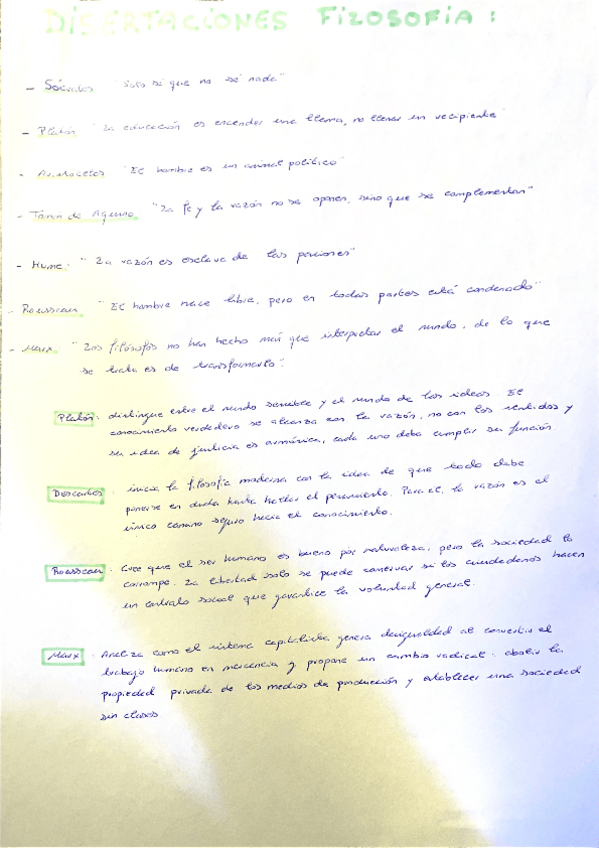 DISERTACIONES FILOSOFIA:
- Sócrates "Solo sé que no sé nada"
- Platón "La educación es encender una llama, no llenar un recipiente"
- Aristóteles "El hombre es un animal político"
- Tomás de Aquino "La fe y la razón no se oponen, sino que se complementan"
- Hume: "La razón es esclava de las pasiones"
- Rousseau "El hombre nace libre, pero en todas partes está condenado"
- Marx: "Los filósofos no han hecho más que interpretar el mundo, de lo que
se trata es de transformarlo".
Platón: distingue entre el mundo sensible y el mundo de las ideas. El
conocimiento verdadero se alcanza con la razón, no con los sentidos y
su idea de justicia es armónica, cada uno debe cumplir su función.
Descartes: inicia la filosofía moderna con la idea de que todo debe
ponerse en duda hasta hallar el pensamiento. Para el, la razón es el
único camino seguro hacia el conocimiento.
Rousseau: Cree que el ser humano es bueno por naturaleza, pero la sociedad lo
corrompe. La libertad solo se puede conservar si los ciudadanos hacen
un contrato social que garantice la voluntad general.
Marx: Analiza como el sistema capitalista genera desigualdad al convertir el
trabajo humano en mercancía y propone un cambio radical: abolir la
propiedad privada de los medios de producción y establecer una sociedad
sin clases